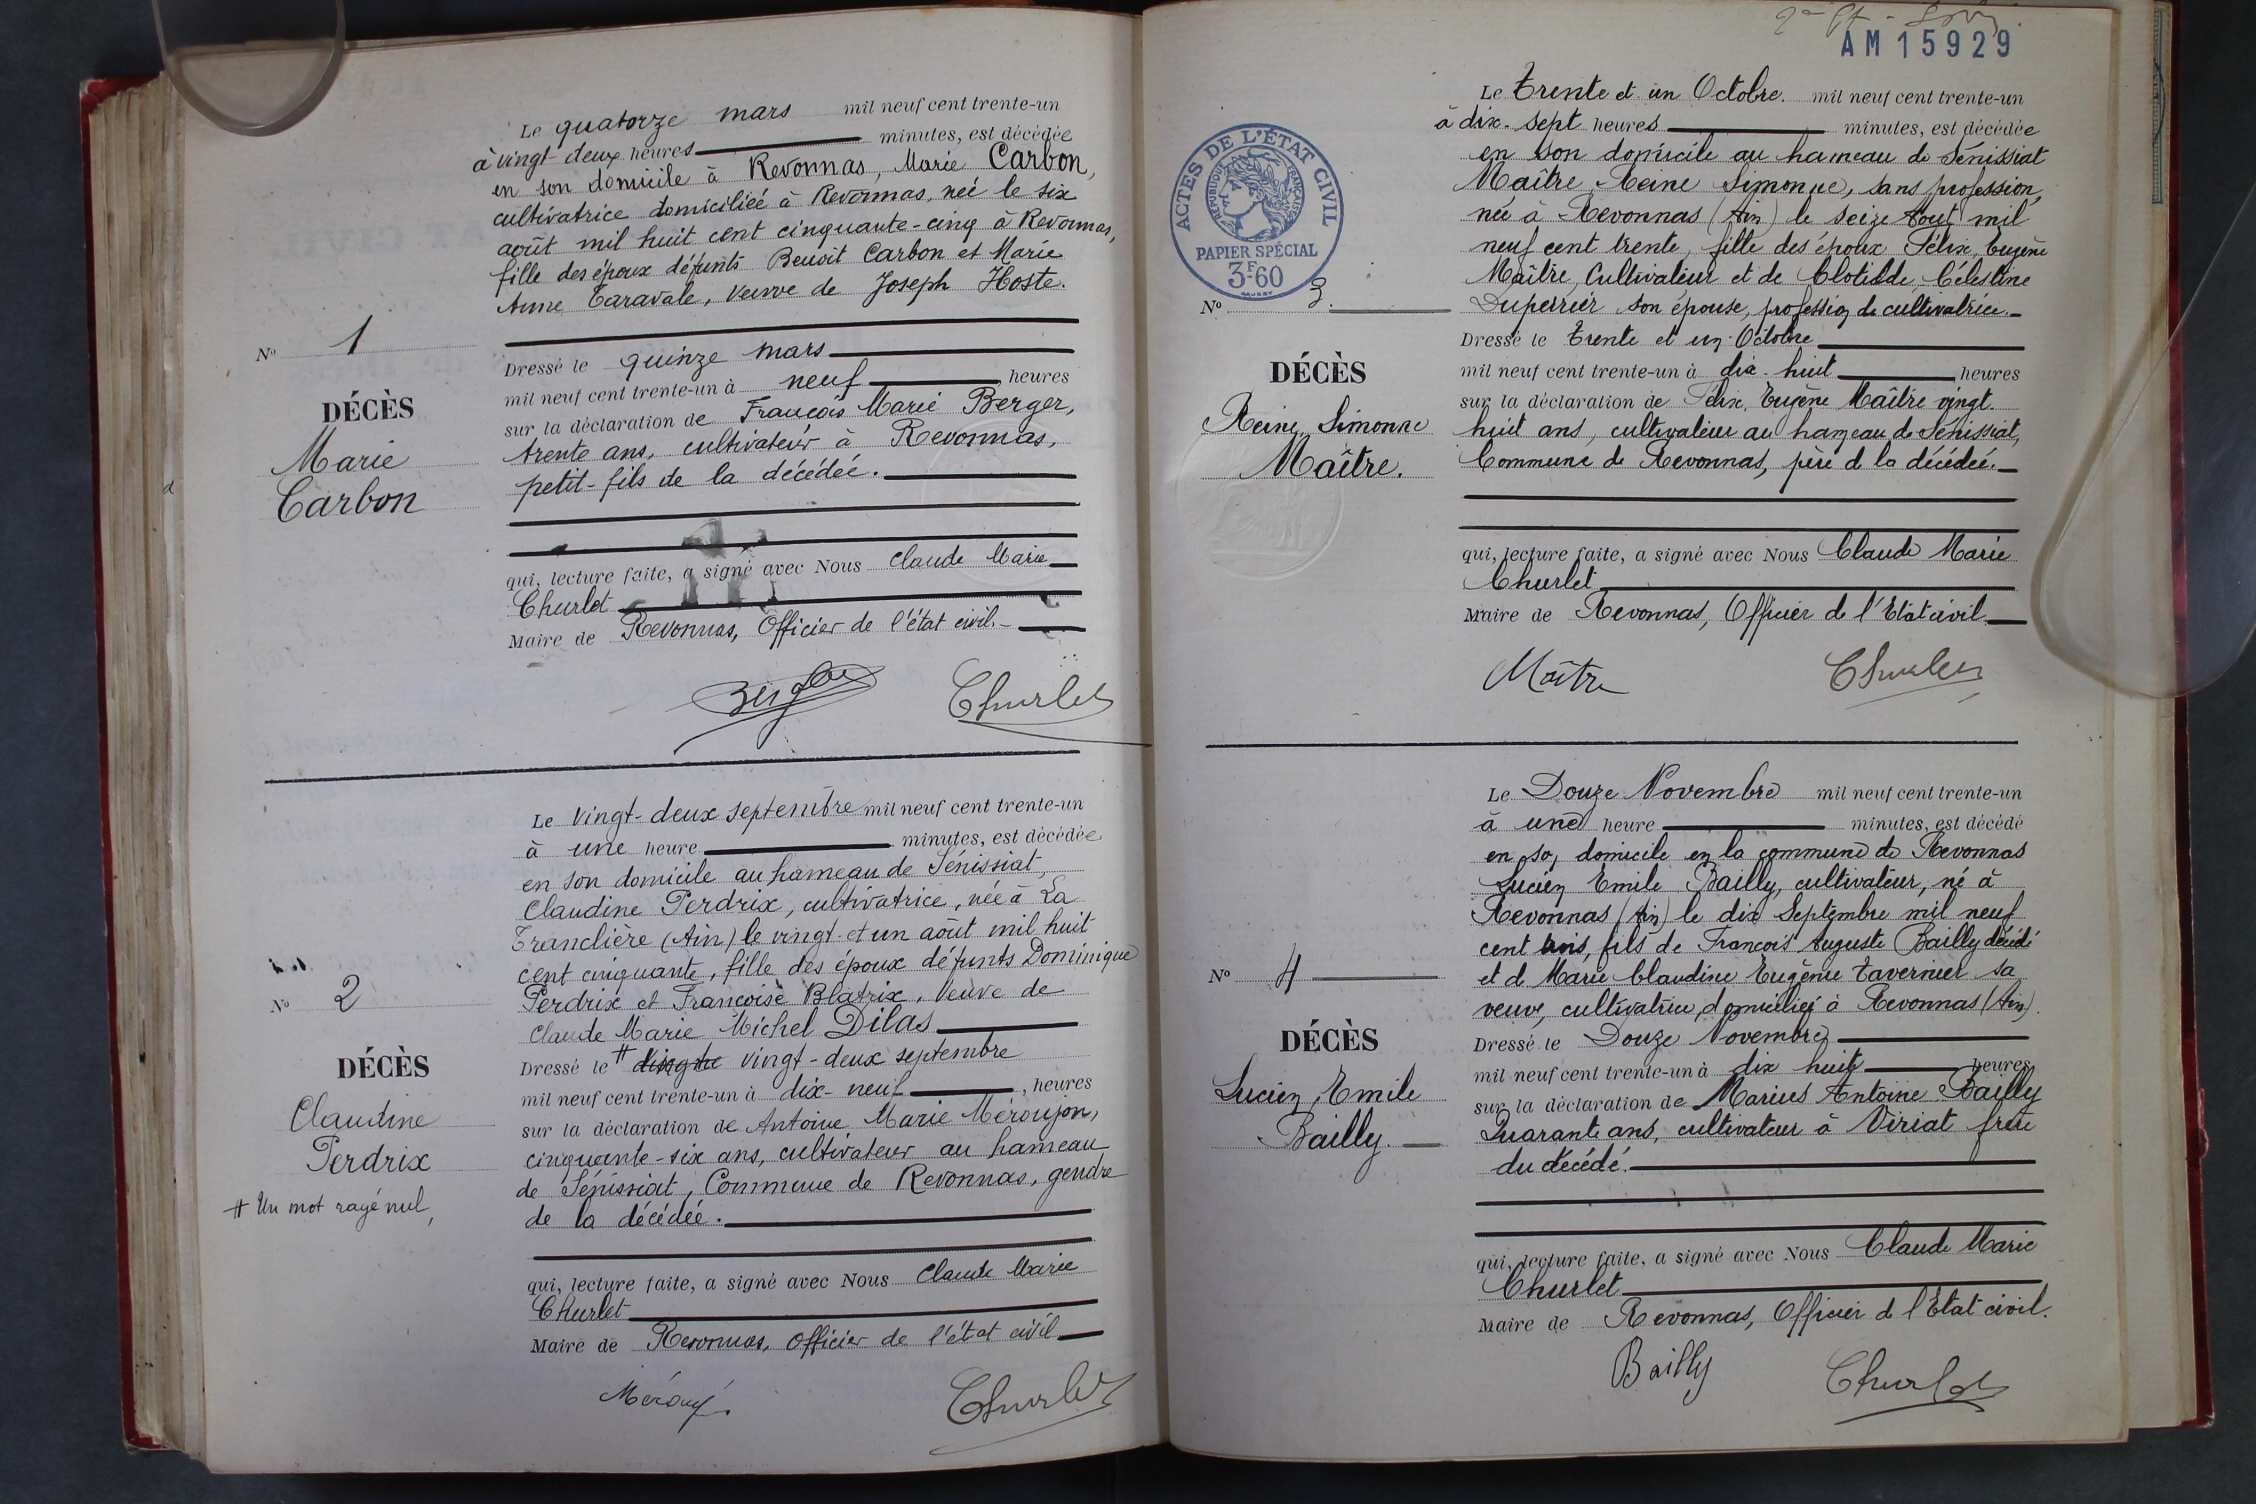 Le quatorze mars mil neuf cent trente-un
à vingt-deux heures minutes, est décédée
en son domicile à Revonnas, Marie Carbon,
cultivatrice domiciliée à Revonnas, née le six
août mil huit cent cinquante-cinq à Revonnas,
fille des époux défunts Benoit Carbon et Marie
Anne Taravale, veuve de Joseph Hoste.
Nº 1
DÉCÈS
Marie
Carbon
Dressé le quinze mars
mil neuf cent trente-un à neuf heures
sur la déclaration de François Marie Berger,
trente ans, cultivateur à Revonnas,
petit-fils de la décédée.
qui, lecture faite, a signé avec Nous Claude Marie
Churlet
Maire de Revonnas, Officier de l'état civil.
Churlet
Le vingt-deux septembre mil neuf cent trente-un
à une heure minutes, est décédée
en son domicile au hameau de Sénissiat,
Claudine Perdrix, cultivatrice, née à La
Tranclière (Ain) le vingt-et un août mil huit
cent cinquante, fille des époux défunts Dominique
Perdrix et Françoise Blatrix, veuve de
Claude Marie Michel Dilas
Nº 2
DÉCÈS
Claudine
Perdrix
# Un mot rayé nul,
Dressé le # vingt-deux septembre
mil neuf cent trente-un à dix-neuf, heures
sur la déclaration de Antoine Marie Méroujon,
cinquante-six ans, cultivateur au hameau
de Sénissiat, Commune de Revonnas, gendre
de la décédée.
qui, lecture faite, a signé avec Nous Claude Marie
Churlet
Maire de Revonnas, Officier de l'état civil
Churlet
AM 15929
ACTES DE L'ÉTAT CIVIL
RÉPUBLIQUE FRANÇAISE
PAPIER SPÉCIAL
3F60
Le Trente et un Octobre. mil neuf cent trente-un
à dix-sept heures minutes, est décédée
en son domicile au hameau de Sénissiat
Maître Reine Simonne, sans profession,
née à Revonnas (Ain) le seize Aout mil
neuf cent trente, fille des époux Félix, Eugène
Maître, Cultivateur et de Clotilde, Célestine
Duperrier son épouse, profession de cultivatrice.
Nº 3.
DÉCÈS
Reine Simonne
Maître.
Dressé le Trente et un Octobre
mil neuf cent trente-un à dix-huit heures
sur la déclaration de Félix, Eugène Maître vingt-
huit ans, cultivateur au hameau de Sénissiat,
Commune de Revonnas, père de la décédée.
qui, lecture faite, a signé avec Nous Claude Marie
Churlet
Maire de Revonnas, Officier de l'Etat civil
Maître Churlet
Le Douze Novembre mil neuf cent trente-un
à une heure minutes, est décédé
en son domicile en la commune de Revonnas
Lucien Emile Bailly, cultivateur, né à
Revonnas (Ain) le dix Septembre mil neuf
cent trois, fils de François Auguste Bailly décédé
et de Marie Claudine Eugénie Tavernier sa
veuve, cultivatrice, domiciliée à Revonnas (Ain).
Nº 4
DÉCÈS
Lucien, Emile
Bailly.
Dressé le Douze Novembre
mil neuf cent trente-un à dix huit heures
sur la déclaration de Marius Antoine Bailly
Quarante ans, cultivateur à Viriat frère
du décédé.
qui, lecture faite, a signé avec Nous Claude Marie
Churlet
Maire de Revonnas, Officier de l'Etat civil.
Bailly Churlet